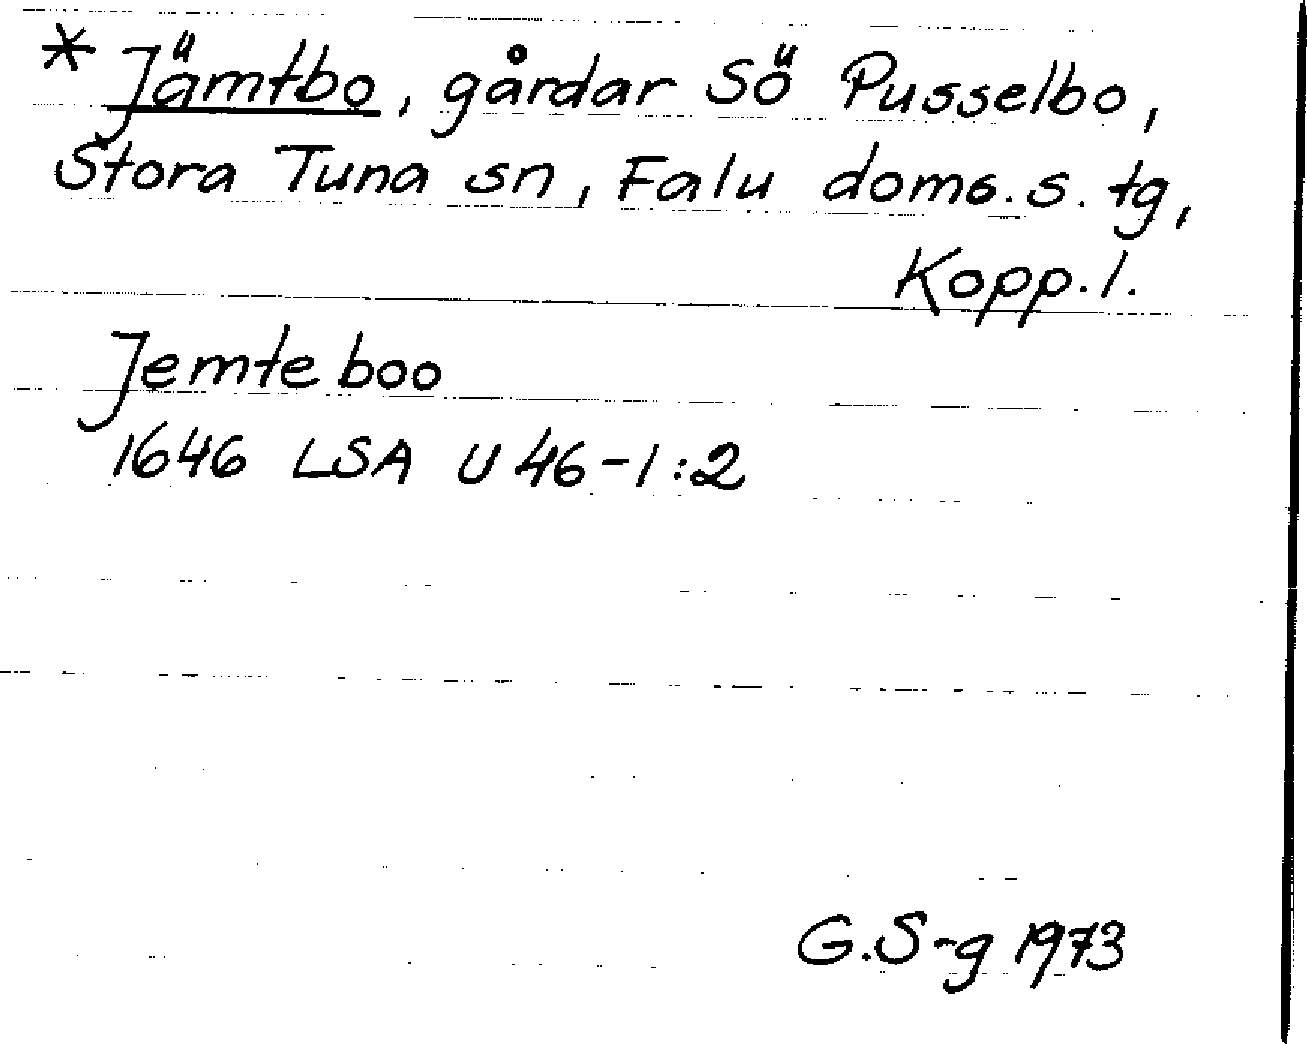 * Jämtbo, gårdar SÖ Pusselbo,
Stora Tuna sn, Falu doms.s. tg,
Kopp.l.
Jemteboo
1646 LSA U 46-1:2
G.S-g 1973